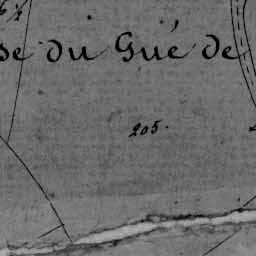 du Gué de
205.